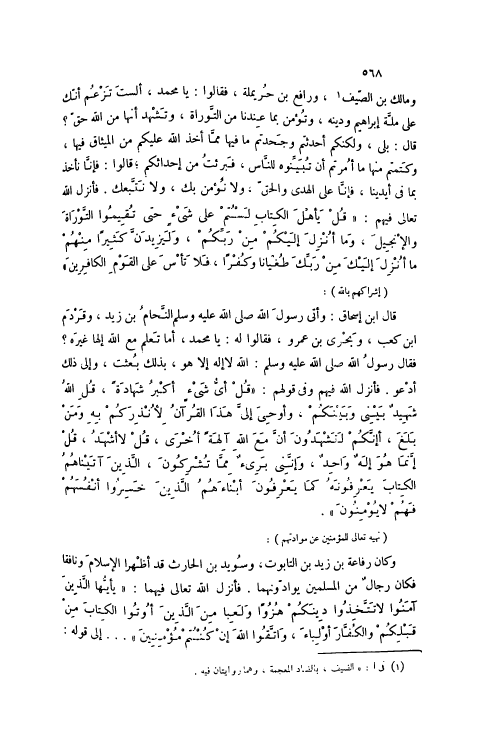 ٥٦٨
ومالك بن الصَّيف١ ، ورافع بن حُريملة ، فقالوا : يا محمد ، ألستَ تَزْعُم أنَّك
على ملَّة إبراهيم ودينه ، وتُؤْمن بما عِندنا من التَّوراة ، وتَشْهد أنها من الله حقّ ؟
قال : بلى ، ولكنكم أحدثتم وجَحدتم ما فيها ممَّا أخذ الله عليكم من الميثاق فيها ،
وكتمتم منها ما أُمرتم أن تُبَيِّنوه للنَّاس ، فبَرئتُ من إحداثكم ؛ قالوا : فإنَّا نأخذ
بما فى أيدينا ، فإنَّا على الهدى والحقّ ، ولا نُؤْمن بك ، ولا نَتَّبعك . فأنزل الله
تعالى فيهم : « قُلْ يَأَهْلَ الكِتابِ لَسْتُمْ على شَىْءٍ حتى تُقِيمُوا التَّوْرَاةَ
والإنْجِيلَ ، وَما أُنْزِلَ إلَيْكُمْ مِنْ رَبِّكُمْ ، وَلَيَزِيدَنَّ كَثِيرًا مِنْهُمْ
ما أُنْزِلَ إلَيْكَ مِنْ رَبِّكَ طُغْيانا وكُفْرًا ، فَلا تَأْسَ على القَوْمِ الكافِرِينَ»
( إشراكهم بالله ) :
قال ابن إسحاق : وأتى رسولَ الله صلى الله عليه وسلم النَّحامُ بن زيد ، وقَرْدَم
ابن كعب ، وبَحْرى بن عمرو ، فقالوا له : يا محمد ، أما تعلم مع الله إلها غيرَه ؟
فقال رسولُ الله صلى الله عليه وسلم : الله لاإله إلا هو ، بذلك بُعثت ، وإلى ذلك
أدْعو . فأنزل الله فيهم وفى قولهم : «قُلْ أىُّ شَىْءٍ أكْبَرُ شَهادَةً ، قُلِ اللهُ
شَهِيدٌ بَيْنِى وَبَيْنَكُمْ ، وأوحِىَ إلىَّ هَذَا القُرآنُ لأُنْذِرَكُمْ بِهِ وَمَنْ
بَلَغَ ، أئِنَّكُمْ لَتَشْهَدُونَ أنَّ مَعَ اللهِ آلِهَةً أُخْرَى ، قُلْ لا أشْهَدُ ، قُلْ
إنَّمَا هُوَ إلَهٌ وَاحِدٌ ، وَإنَّنِى بَرِىءٌ مِمَّا تُشْرِكُونَ ، الَّذِينَ آتَيْناهُمُ
الكِتابَ يَعْرِفُونَهُ كمَا يَعْرِفُونَ أبْناءَهُمُ الَّذِينَ خَسِرُوا أنْفُسَهُمْ
فَهُمْ لايُؤْمِنُونَ» .
( نهيه تعالى للمؤمنين عن موادتهم ) :
وكان رفاعة بن زيد بن التابوت، وسُويد بن الحارث قد أظهرا الإسلامَ ونافقا
فكان رجالٌ من المسلمين يوادّونهما . فأنزل الله تعالى فيهما : « يأيُّها الَّذِينَ
آمَنُوا لاتَتَّخِذُوا دِينَكُمْ هُزُوًا وَلَعِبا مِنَ الَّذِينَ أُوتُوا الكِتابَ مِنْ
قَبْلِكُمْ والكُفَّارَ أوْلِياءَ ، وَاتَّقُوا اللهَ إنْ كُنْتُمْ مُؤْمِنِينَ» . . . إلى قوله :
(١) فى ا : « الضيف ، بالضاد المعجمة ، وهما روايتان فيه .